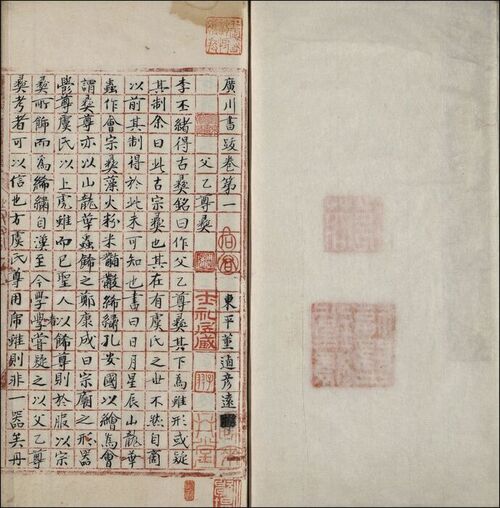 廣川書跋卷第一
東平董逌彥遠
父乙尊彝
李丕緒得古彝銘曰作父乙尊彝其下為雖形或疑
其制余曰此古宗彝也其在有虞氏之世不然自商
以前其制得於此未可知也書曰日月星辰山龍華
蟲作會宗彝藻火粉米黼黻絺繡孔安國以繪為會
謂彝尊亦以山龍華蟲飾之鄭康成曰宗廟之形器
鬱尊虞氏以上虎雖而已聖人以飾尊則於服以宗
彝所飾而為絺繡自漢至今學者嘗疑之以父乙尊
彝考者可以信也方虞氏尊用虎雖則非一器矣丹